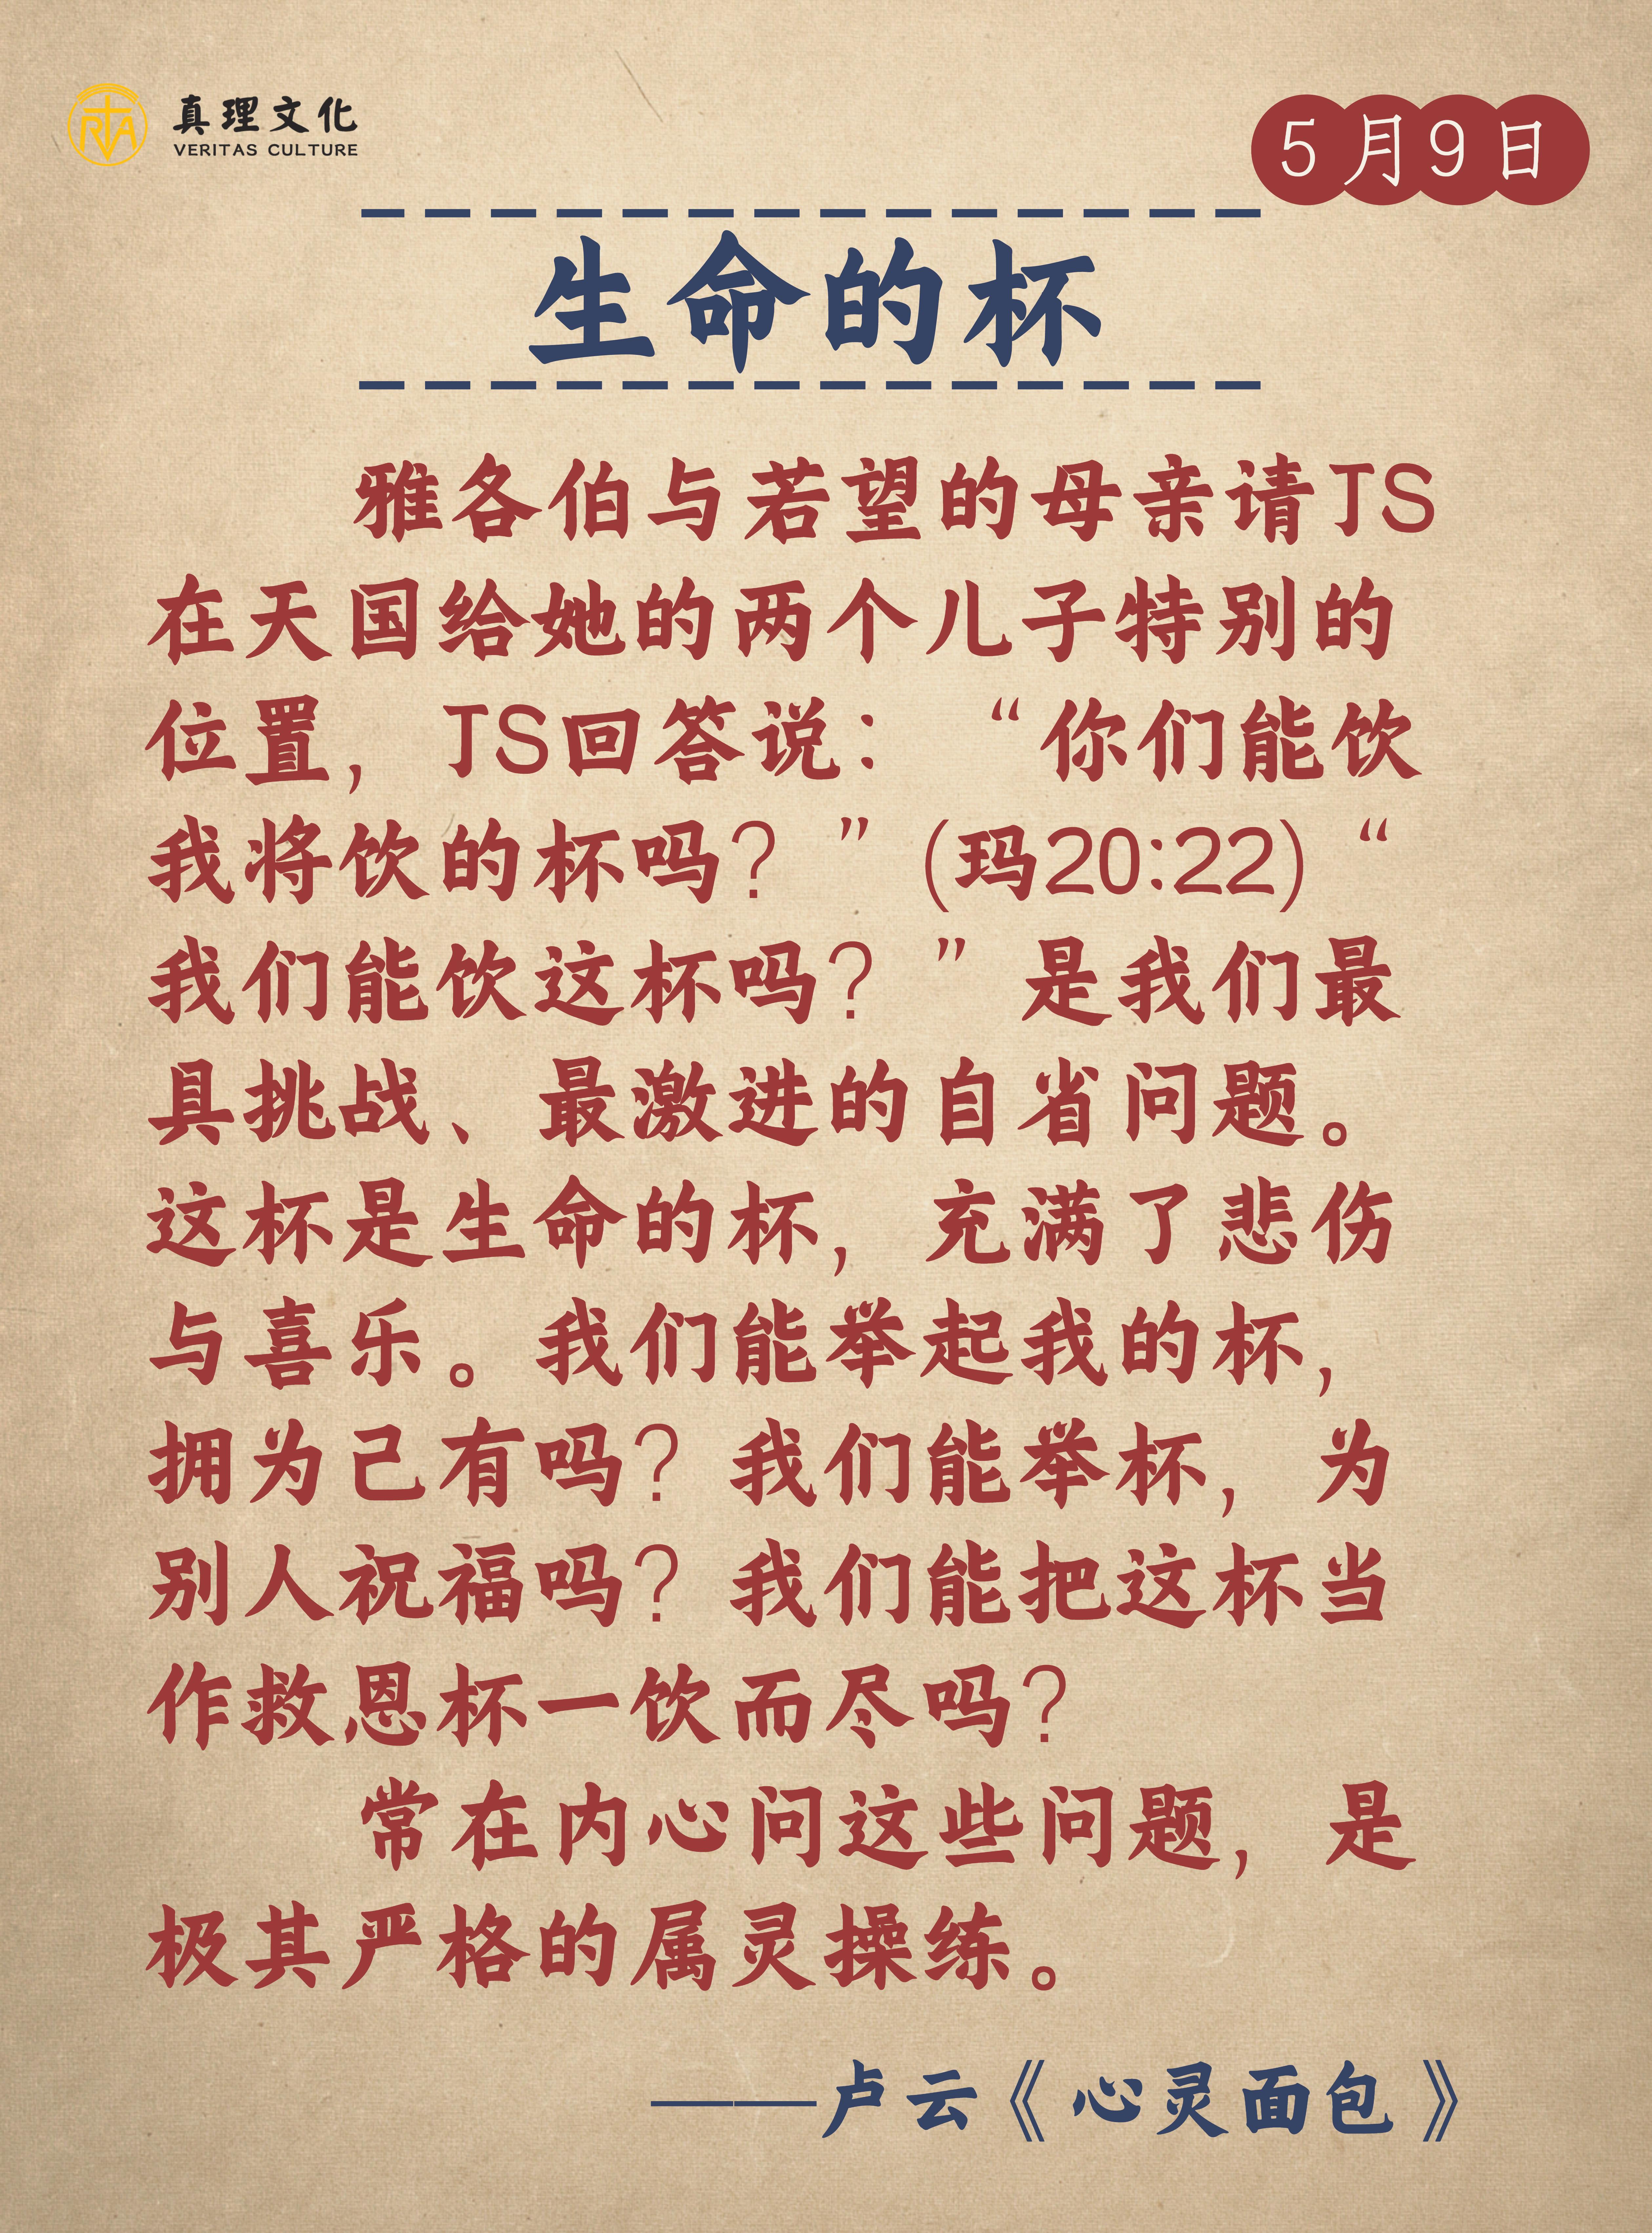 真理文化
VERITAS CULTURE
5月9日
生命的杯
雅各伯与若望的母亲请JS
在天国给她的两个儿子特别的
位置，JS回答说：“你们能饮
我将饮的杯吗？”(玛20:22)“
我们能饮这杯吗？”是我们最
具挑战、最激进的自省问题。
这杯是生命的杯，充满了悲伤
与喜乐。我们能举起我的杯，
拥为己有吗？我们能举杯，为
别人祝福吗？我们能把这杯当
作救恩杯一饮而尽吗？
常在内心问这些问题，是
极其严格的属灵操练。
——卢云《心灵面包》